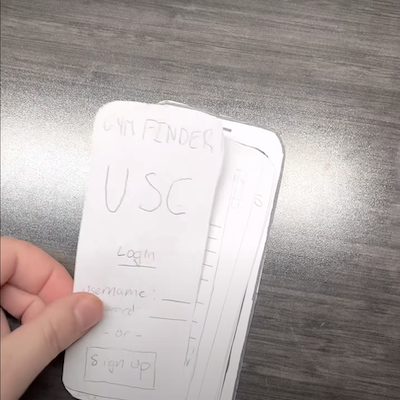 GYM FINDER
USC
Login
username:
or
Sign up